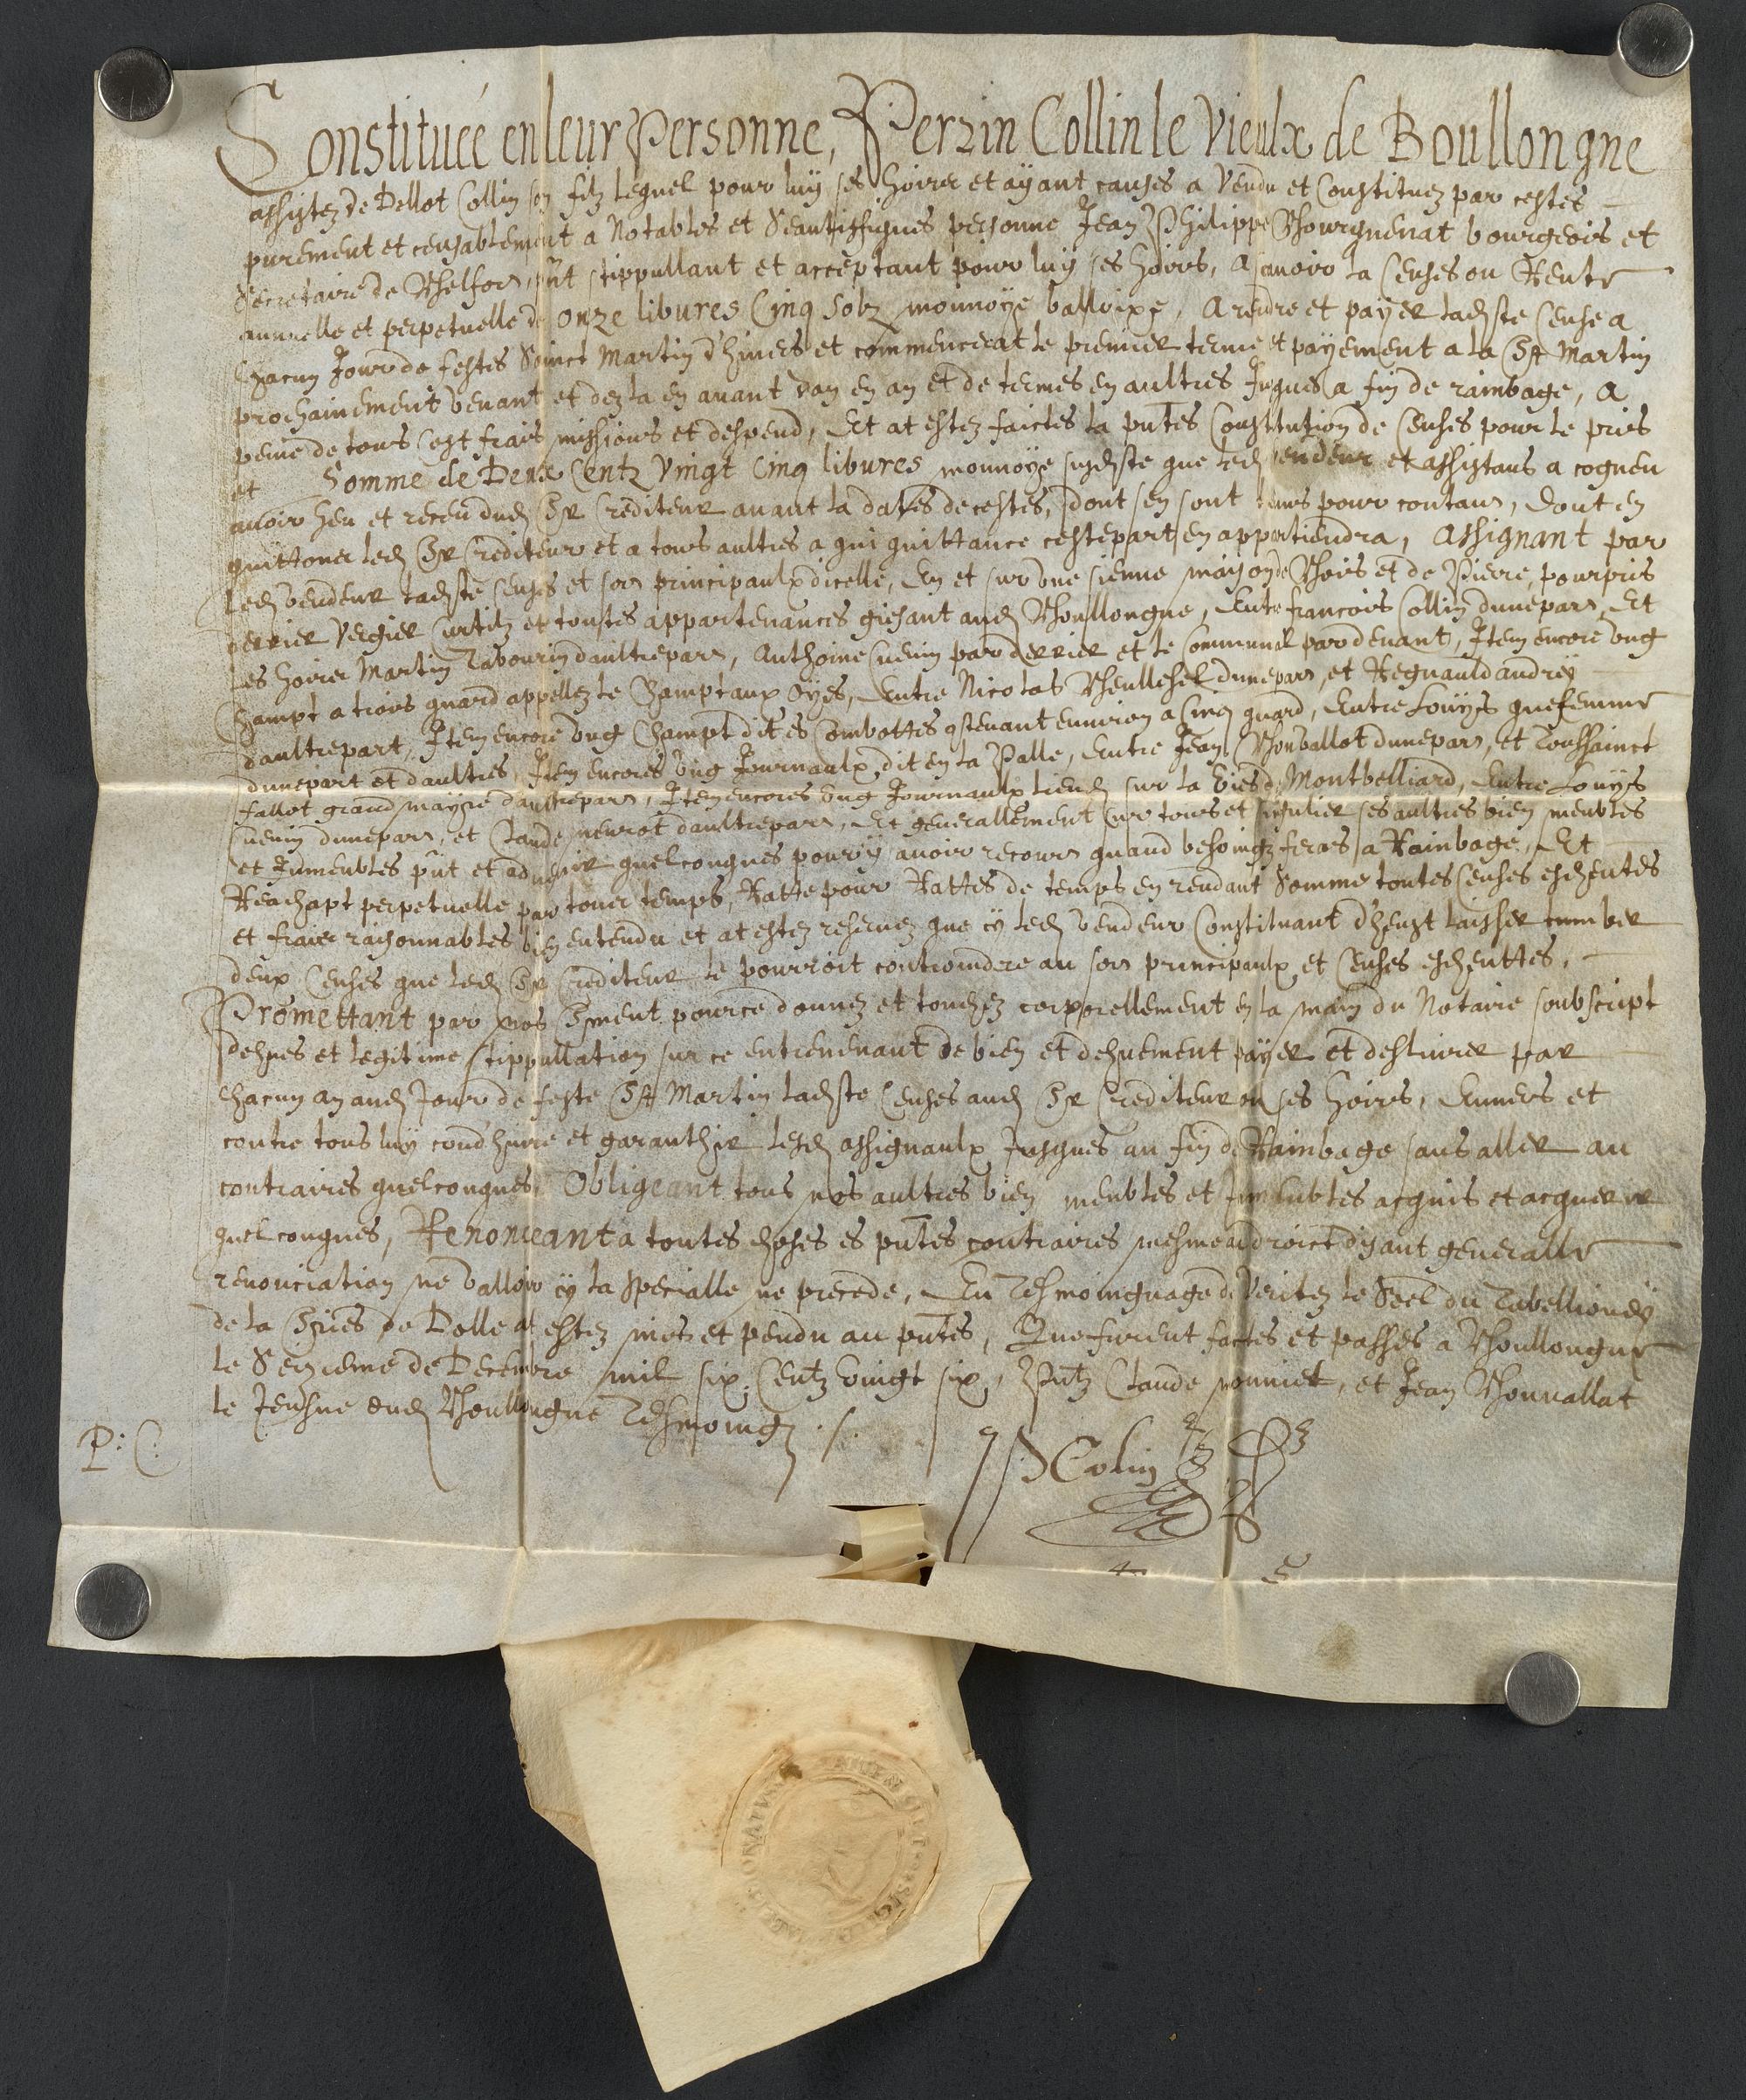 Constituéé en leur Personne, Perzin Collin le Vieulx de Boullongne
assistez de Dellot Collin son filz lequel pour luy ses hoires et ayant causes a vendu et Constituez par cestes
purement et censablement a Notables et personne Jean Philippe Bourquenat bourgeois et
Secretaire de Belfort, pnt stippullant et acceptant pour luy ses hoirs, ascavoir la Censes ou Rente
annuelle et perpetuelle de onze libures Cinq Solz monnoye balloixe, A rendre et payer ladste Cense a
Chacun Jour de festes Sainct Martin d'hivers et commencerat le premier terme et payement a la St Martin
prochainement venant et dez la en avant dan en an et de termes en aultres Jusques a fin de raimbage, a
peine de tous cost frais missions et despend, Et at estez faictes la pntes Constitution de Censes pour le pris
et Somme de Deux Centz Vingt Cinq libures monnoye susdste que led vendeur et assistans a cogneu
avoir heu et receu dud Sr Crediteur avant la dates de cestes, dont sen sont tenus pour contans, dont en
quittoner led Sr Crediteur et a tous aultres a qui quittance cestepart en appartiendra, Assignant par
led vendeur ladste censes et sors principaulx dicelle, En et sur une sienne maison de Bois et de Pierre, pourpris
derrier vergier Curtilz et toustes appartenances giesant aud Boullongne, Ente francois Collin dunepart, Et
les hoires Martin Tabourin daultrepart, Anthoine Cuenin par derrier et le Communal par devant, Item encore ung
Champt a trois quard appellez le Champt aux oyes, Entre Nicolas dunepart, et Regnauld andrey
daultrepart, Item encore ung Champt dit es Combottes contenant environ a Cinq quard, Entre Louys quefemme
dunepart et daultres, Item encores ung Journaulx, dit en la Palle, Entre Jean Bonvallot dunepart, et Toussainct
fallot grand mayre daultrepart, Item encores ung Journaulx lieud sur la Vies de Montbelliard, Entre Louys
Cuenin dunepart, et Claude meurot daultrepart, Et generallement sur tous et singulier ses aultres bien meubles
et Jumeubles pnt et advenir quelconques pour y avoir recours quand besoingz feras a Rainbage, Et
Reachapt perpetuelle par touer temps, Ratte pour Rattes de temps en rendant Somme toutes Censes escheutes
et fraier raisonnables bien entendu et at estez reservez que cy led vendeur Constituant d'heust laisser tumber
deux Censes que led Sr Crediteur le pourroit contraindre au sors principaulx et Censes escheuttes,
Promettant par nos Sment pource donnez et touchez corporellement en la main du Notaire soubscript
dehues et legitime stippullation sur ce entrevenant de bien et dehuement payer et deslivrer par
chacun an aud Jour de feste St Martin ladste Censes aud Sr Crediteur ou ses hoirs, Envers et
contre tous luy cond'huire et garanthir lesd assignaulx Jusques au fin de Rainbage sans aller au
contraires quelconques, Obligeant tous nos aultres bien meubles et Jmeubles acquis et acquerir
quelconques, Renonceant a toutes choses es pntes contraires mesme au droict disant generalle
renonciation ne valloir cy la Specialle ne precede, En Tesmoingnage de Veritez le Seel du Tabellioney
de la Sries de Dolle at estez mis et pendu au pntes, Que furent faictes et passes a Boullongne
le Seizieme de Decembre mil six Centz vingt six, Pntz Claude monniet, et Jean Bonvallat
le Jeusne dud Boullongne Tesmoingz ./.
P: C:
P Colin